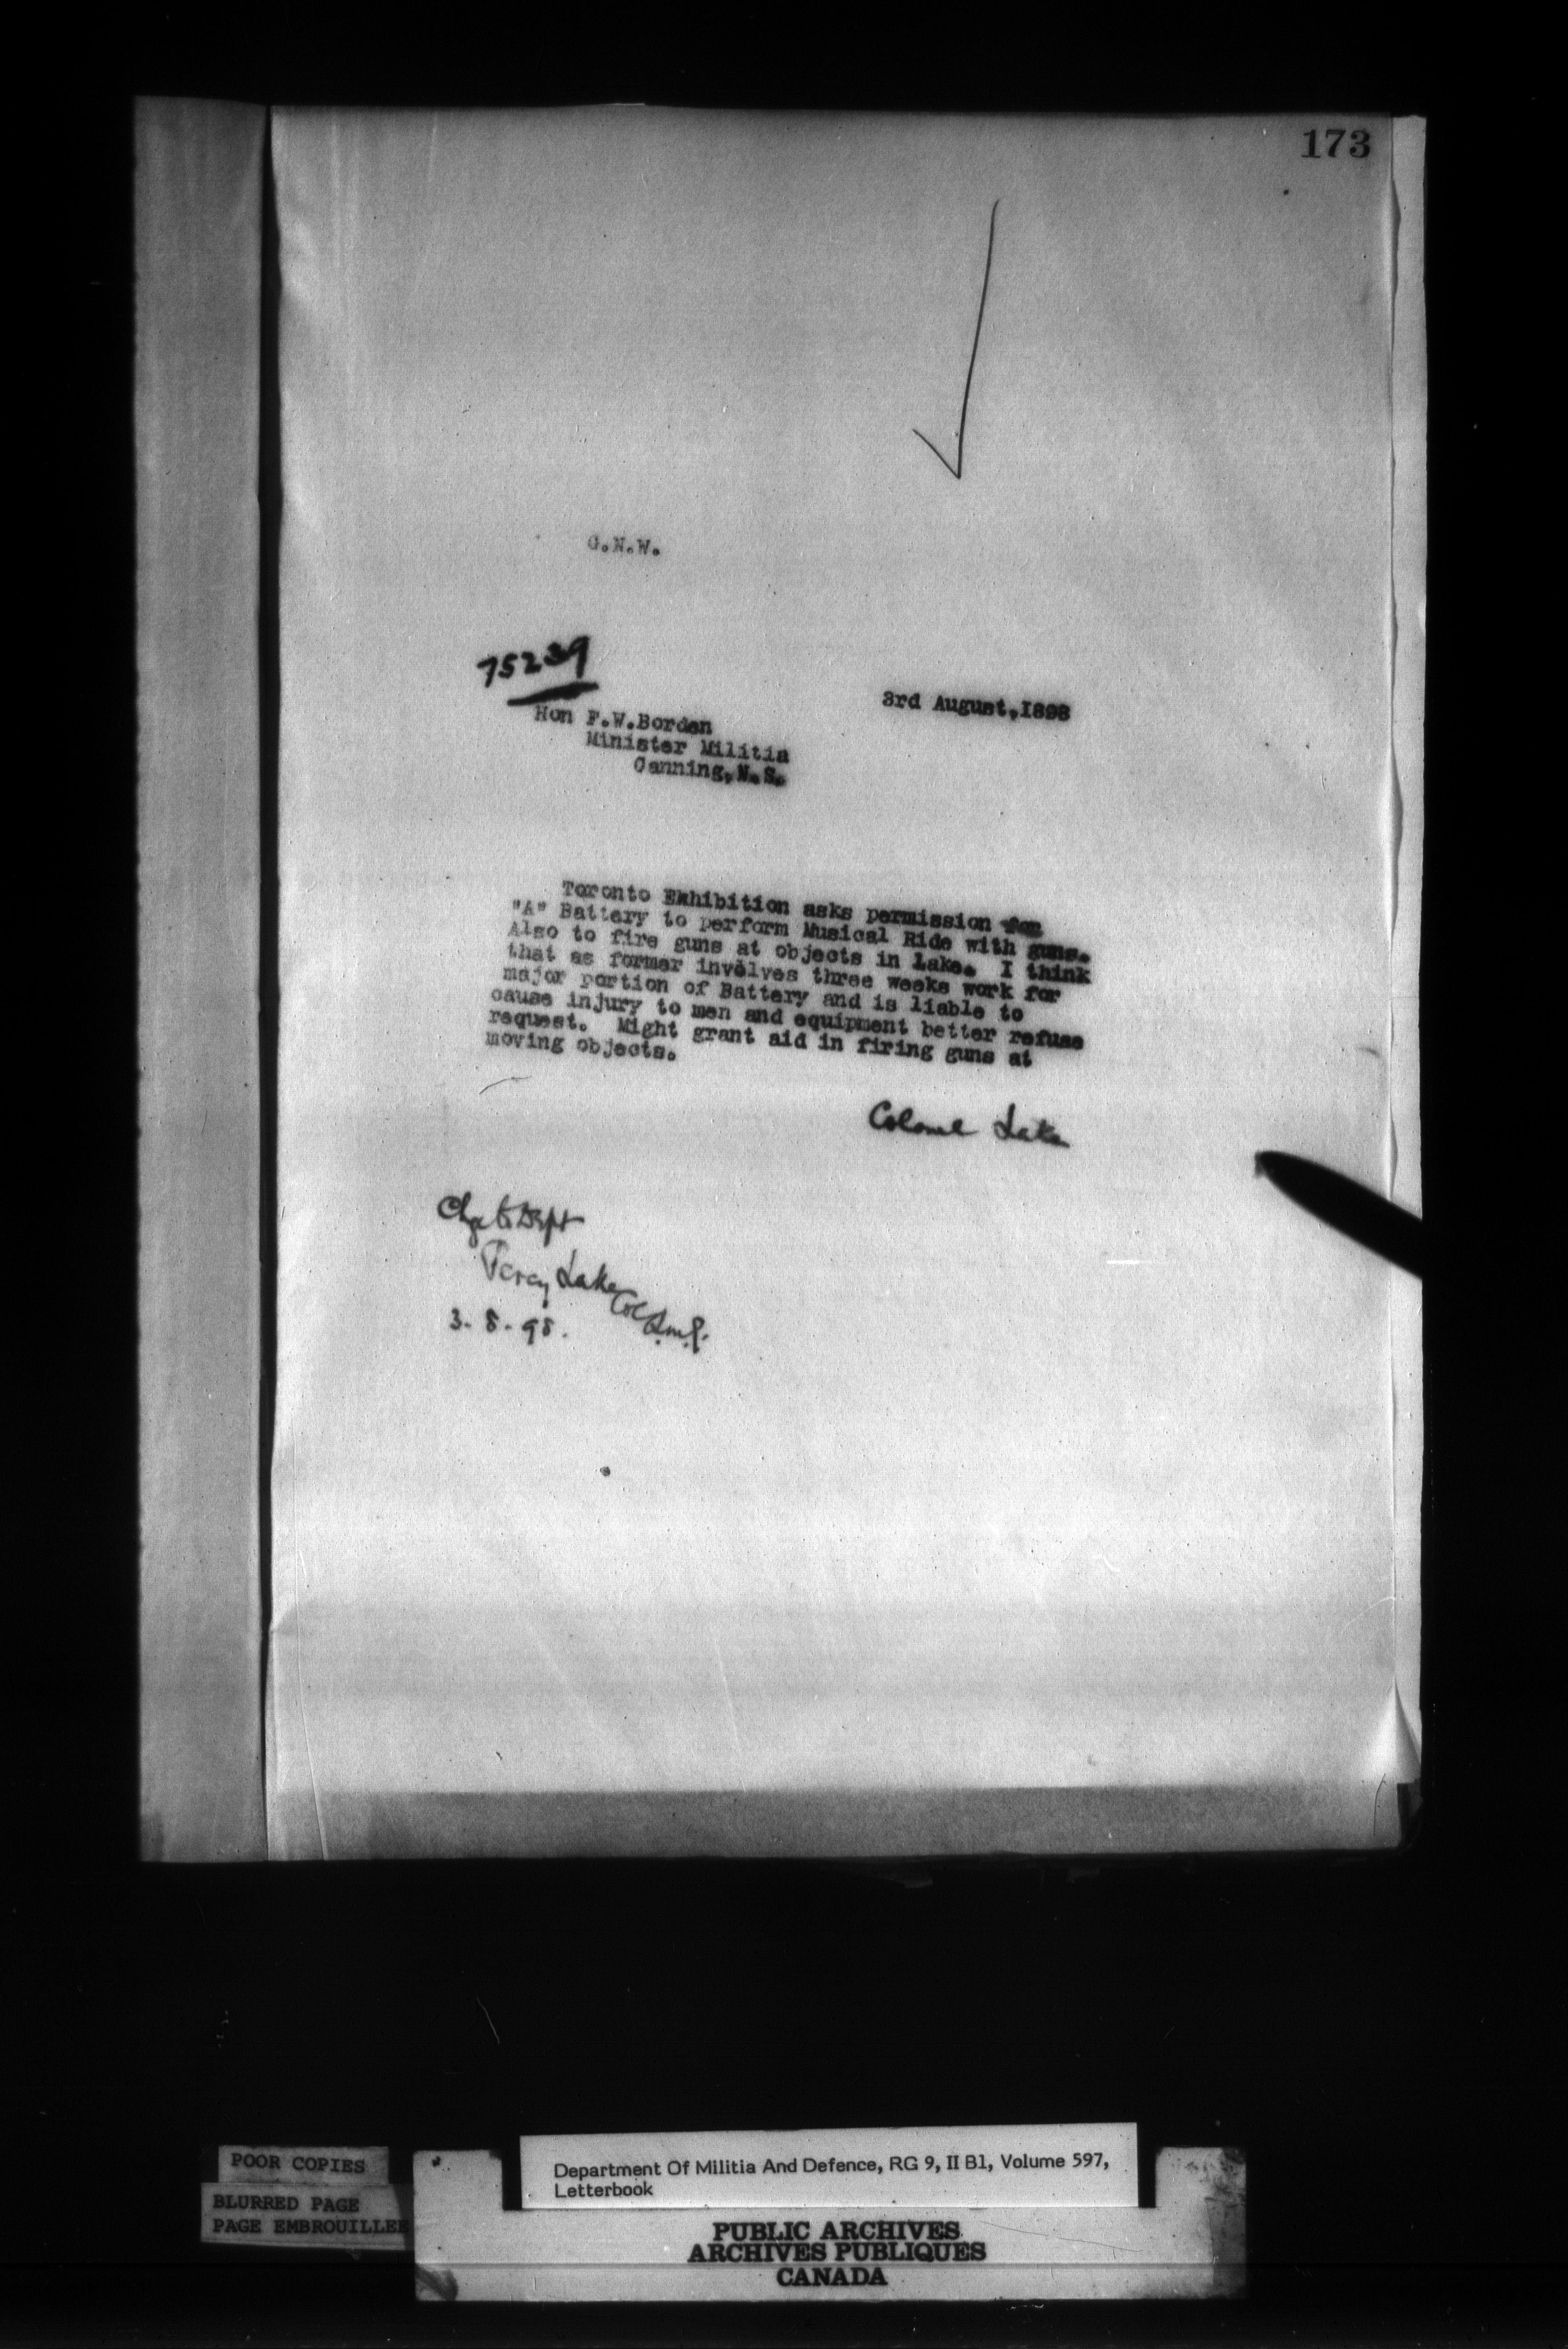 173
G.N.W.
75239
3rd August,I898
Hon F.W.Borden
Minister Militia
Canning,N.S.
Toronto Exhibition asks permission for
"A" Battery to perform Musical Ride with guns.
Also to fire guns at objects in lake. I think
that as former involves three weeks work for
major portion of Battery and is liable to
cause injury to men and equipment better refuse
request. Might grant aid in firing guns at
moving objects.
Colonel Lake
Chge to Dept
Percy Lake Col Q.M.G.
3-8-98.
POOR COPIES
BLURRED PAGE
PAGE EMBROUILLEE
Department Of Militia And Defence, RG 9, II B1, Volume 597,
Letterbook
PUBLIC ARCHIVES
ARCHIVES PUBLIQUES
CANADA